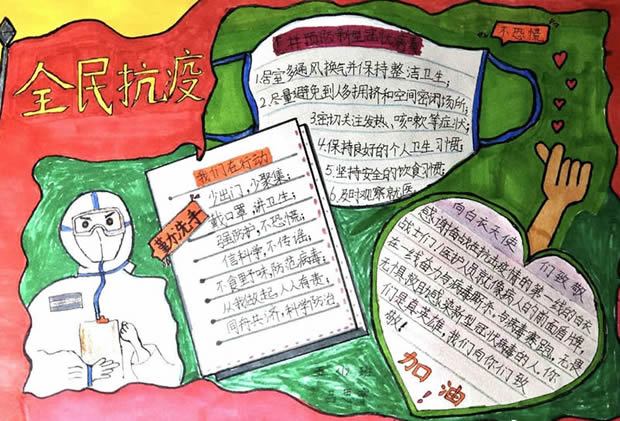 全民抗疫
#预防新型冠状病毒
1.居室多通风换气并保持整洁卫生;
2.尽量避免到人多拥挤和空间密闭场所;
3.密切关注发热、咳嗽等症状;
4.保持良好的个人卫生习惯;
5.坚持安全的饮食习惯;
6.及时观察就医。
不恐慌
我们在行动
少出门,少聚集;
戴口罩,讲卫生;
强防护,不恐慌;
信科学,不传谣;
不食野味,防范病毒;
从我做起,人人有责;
同舟共济,科学防治
勤洗手
向白衣天使们致敬
感谢奋战在抗击疫情的第一线的白衣
战士们!医护人员就像病人的前面盾牌,
在一线奋力与病毒厮杀,与病毒赛跑,无畏
无惧救助感染新型冠状病毒的人,你
们是真英雄,我们向你们致
敬!
加油!